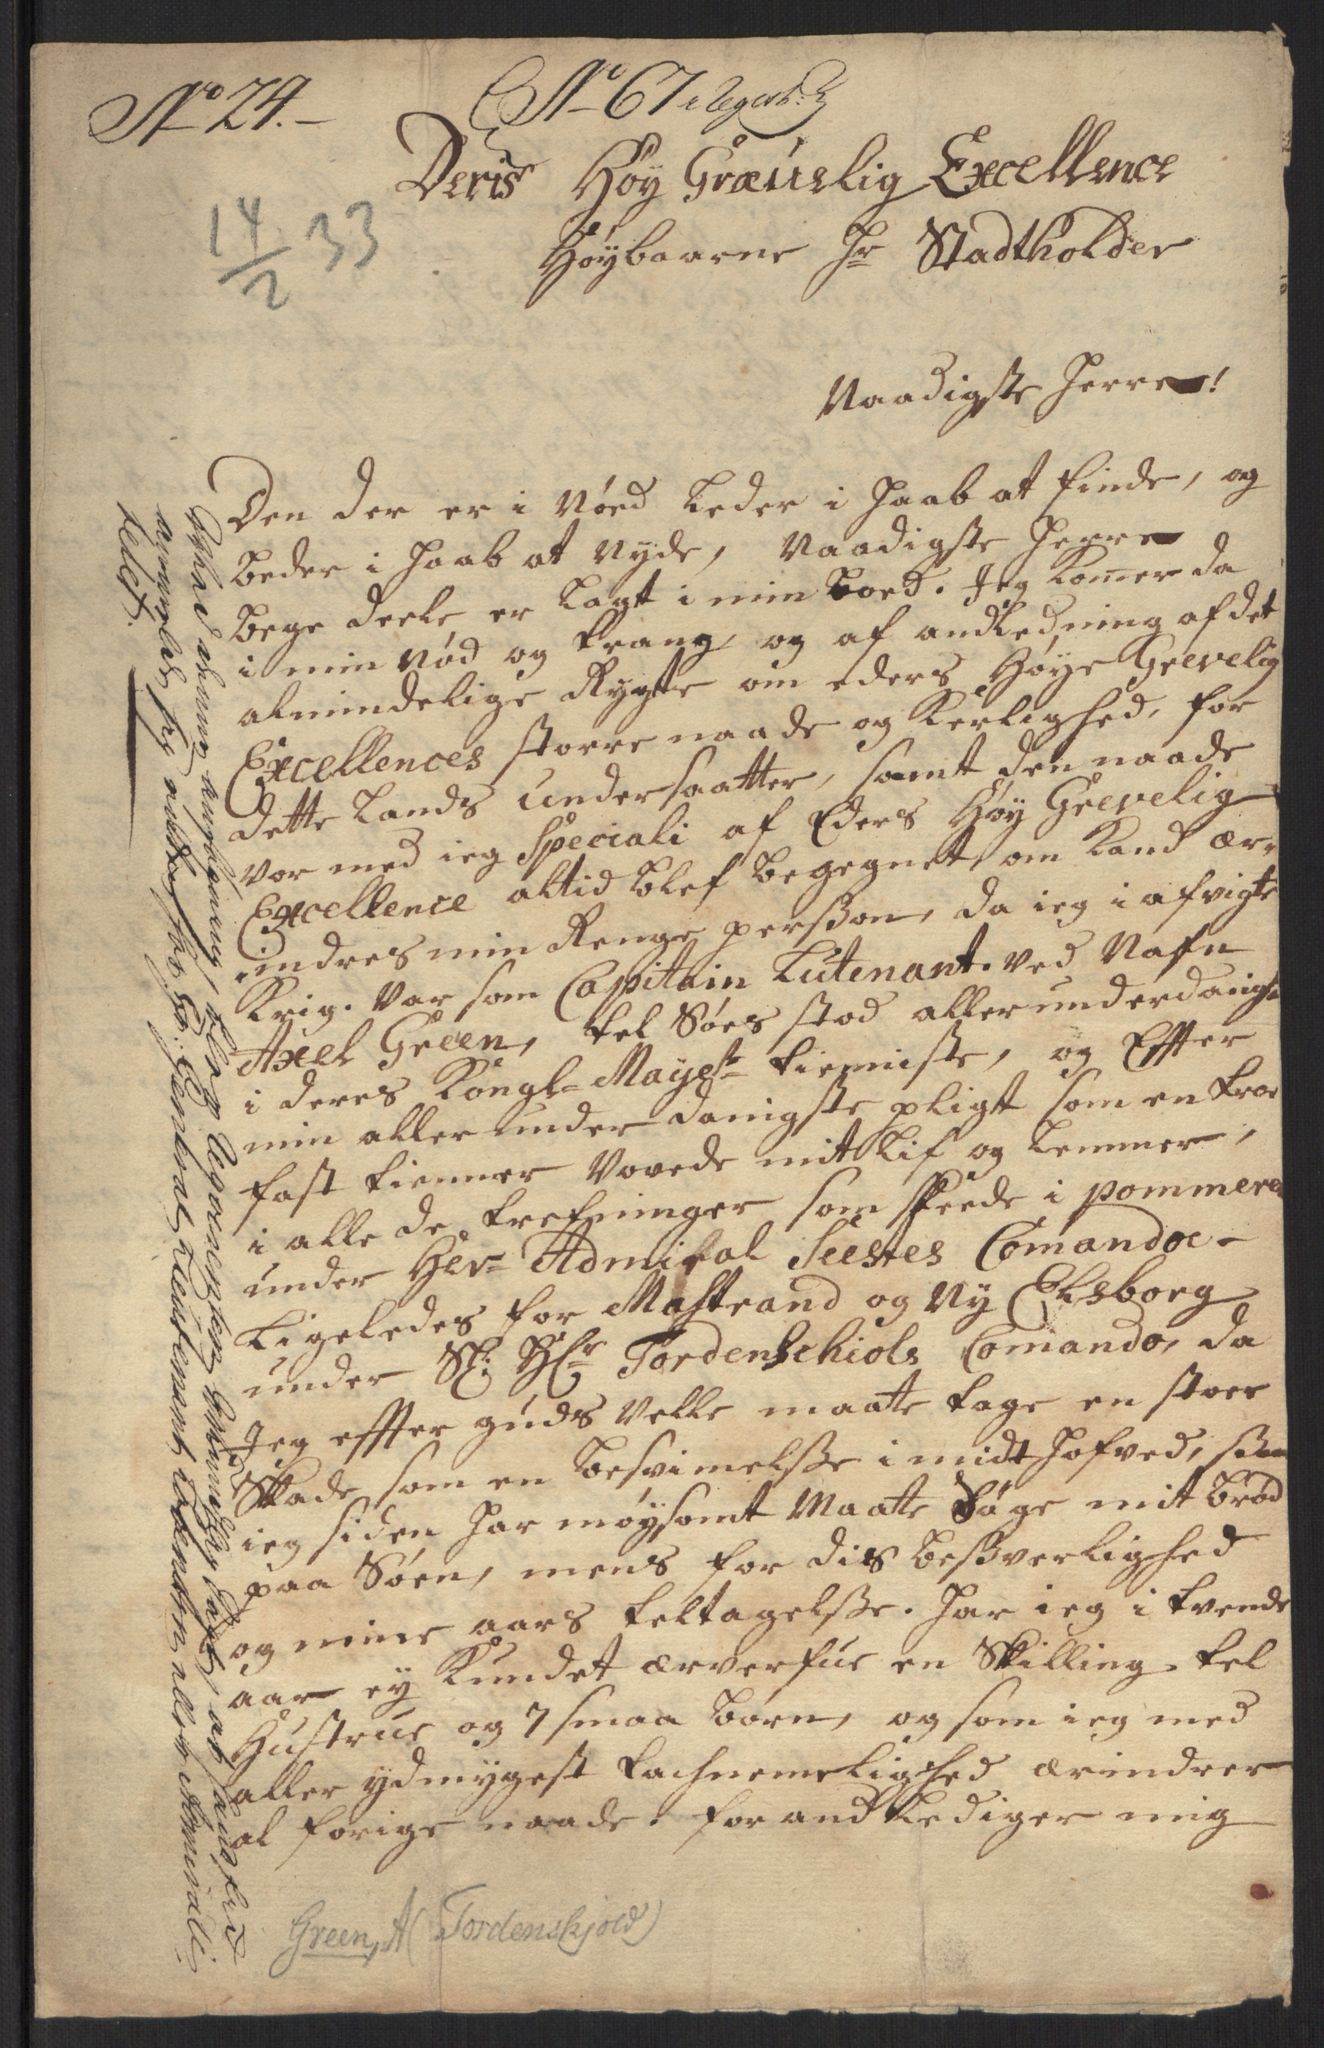 No 24.
No 67
14/2 33
Deris Høy Græuelig Excellence
Høybaarne Hr Stadtholder
Naadigste Herre!
Den der er i Nøed Leder i Haab at finde, og
beder i Haab at Nyde, Naadigste Herre
bege deele er Lagt i min boed. Jeg Komer da
i min Nød og trang, og af andledning af det
almindelige Rygte om eders Høye Grevelig
Excellences storre naade og Kerlighed, for
dette Lands undersaatter, samt den naade
vor med ieg Speciali af Eders Høy Grevelig
Excellence altid blef begegnet, om Kand ær-
indres min Renge perßon, da ieg i afvigte
Krig. Var som Capitain Lutenant. ved Nafn
Axel Green, tel Søes stod allerunderdanigst
i deres Kongl- Mayest- tienniste, og Effter
min allerunderdanigste pligt som en troe
fast tienner Vovede mit Lif og Lemmer,
i alle de trefninger som skeede i pommeren
under Her- Admiral Seestes Comando-
Ligeledes for Mastrand og Ny Elsborg
under Sl: Hr Tordenschiols Comando, da
Jeg effter guds Velle maatte tage en stoer
Skade som en besvimelsße i midt Hofved,
ieg siden Har møysomt Maatte Søge mit brød
paa Søen, mens for dis beßverlighed
og mine aars teltagelsße. Har ieg i tvende
aar ey Kundet ærverfue en Skilling tel
Hustrue og 7 smaa børn, og som ieg med
aller ydmygest tachnemelighed ærindrer
al forige naade. for andlediger mig
Green, A (Tordenskjold)